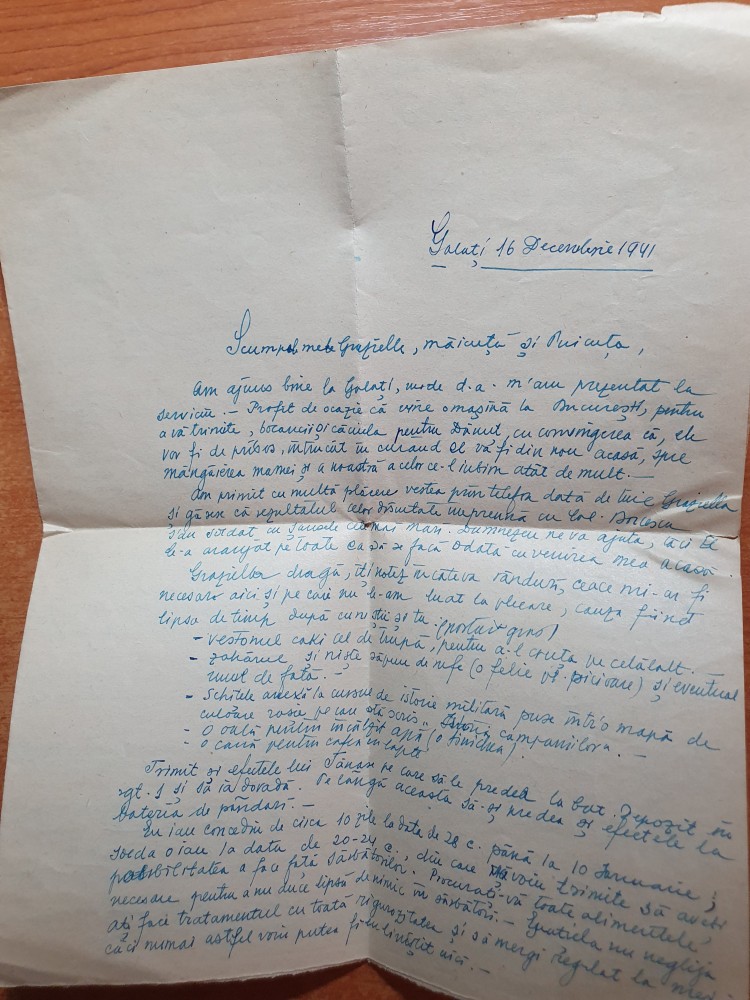 Galați 16 Decembrie 1941
Scumpele mele Graziella, măicuță și Puicuța,
Am ajuns bine la Galați, unde d.a. m'am prezentat la
serviciu. — Profit de ocazie că vine o mașină la București, pentru
a vă trimite, bocancii și căciula pentru Dănuț, cu convingerea că, ele
vor fi de prisos, întrucât în curând el va fi din nou acasă, spre
mângâierea mamei și a noastră a celor ce-l iubim atât de mult. —
Am primit cu multă plăcere vestea prin telefon dată de tine Graziella
și găsesc că rezultatul celor discutate împreună cu Col.
soldat cu șansele cele mai mari. Dumnezeu ne va ajuta, căci El
le-a aranjat pe toate ca să se facă odată cu venirea mea acasă.
Graziella dragă, îți notez în câteva rânduri, ceace mi-ar fi
necesar aici și pe care nu le-am luat la plecare, cauza fiind
lipsa de timp după cum știi și tu.
- vestonul caki cel de trupă, pentru a-l cruța pe celălalt. —
- zahărul și niște săpun de rufe (o felie pt. picioare) și eventual
unul de față. —
- Schițele anexă la cursul de istorie militară puse într'o mapă de
culoare roșie pe care stă scris „Istoria campaniilor". —
- O oală pentru încălzit apă
- o cană pentru cafea cu lapte
Trimit și efectele lui Tănase pe care să le predea la bat. Depozit în
gt. 5 și să ia dovadă. Pe lângă aceasta să-și predea și efectele la
bateria de —
Eu iau concediu de circa 10 zile la data de 28 c. până la 10 Ianuarie;
solda o iau la data de 20-24 c., din care vă voiu trimite să aveți
posibilitatea a face față sărbătorilor. Procurați-vă toate alimentele
necesare pentru a nu duce lipsă de nimic în sărbători. — nu neglija
a-ți face tratamentul cu toată rigurozitatea și să mergi regulat la
căci numai astfel voiu putea fi liniștit aici. —